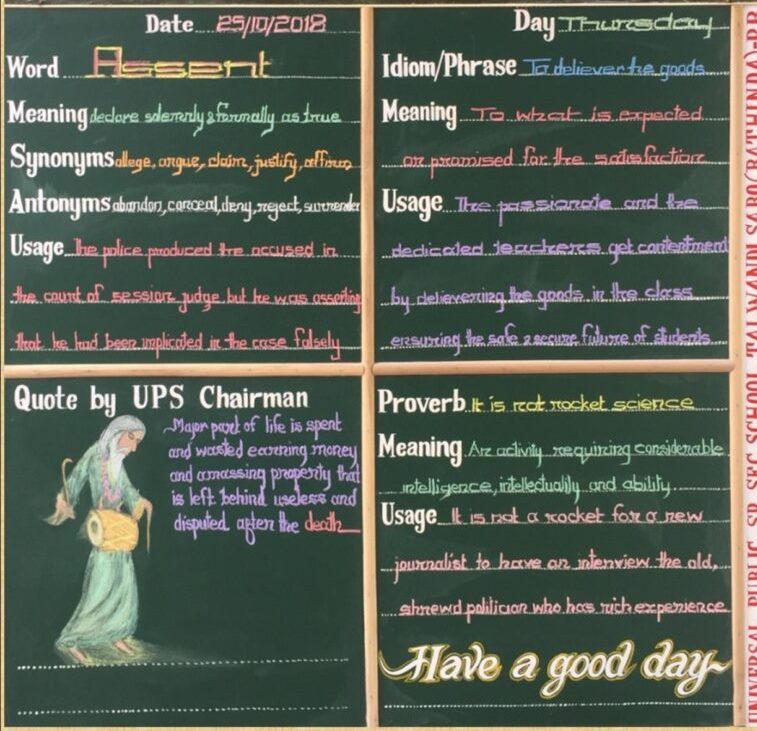 Date 25/10/2018
Word Assert
Meaning declare solemnly & formally as true
Synonyms allege, argue, claim, justify, affirm
Antonyms abandon, conceal, deny, reject, surrender
Usage The police produced the accused in
the count of session judge but he was asserting
that he had been implicated in the case falsely
Day Thursday
Idiom/Phrase To deliever the goods
Meaning To what is expected
or promised for the satisfaction
Usage The passionate and the
dedicated teachers get contentment
by delievering the goods in the class
ensuring the safe & secure future of students
Quote by UPS Chairman
Major part of life is spent
and wasted earning money
and amassing property that
is left behind useless and
disputed after the death
Proverb It is not rocket science
Meaning An activity requiring considerable
intelligence, intellectuality and ability
Usage It is not a rocket for a new
journalist to have an interview the old,
shrewd politician who has rich experience
Have a good day
UNIVERSAL PUBLIC SR. SEC. SCHOOL TALWANDI SABO(BATHINDA)-PB